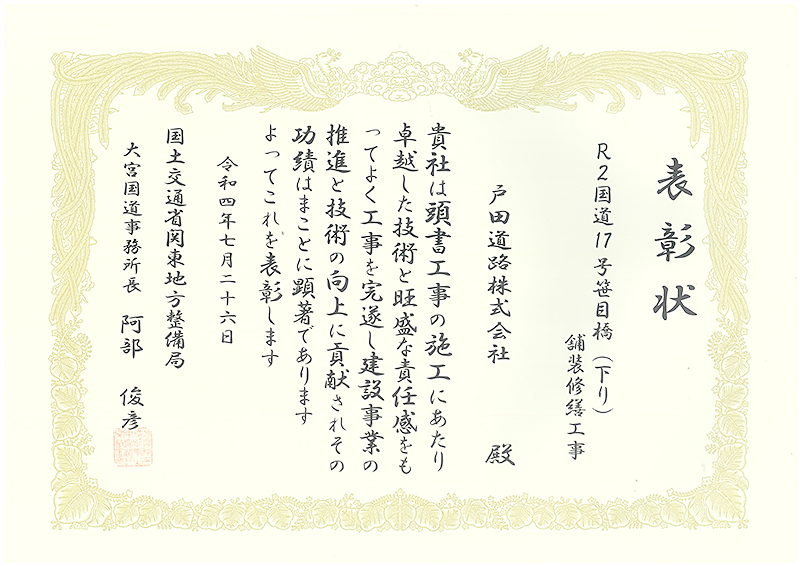 表彰状
R2国道17号笹目橋(下り)
舗装修繕工事
戸田道路株式会社 殿
貴社は頭書工事の施工にあたり
卓越した技術と旺盛な責任感をも
ってよく工事を完遂し建設事業の
推進と技術の向上に貢献されその
功績はまことに顕著であります
よってこれを表彰します
令和四年七月二十六日
国土交通省関東地方整備局
大宮国道事務所長 阿部 俊彦